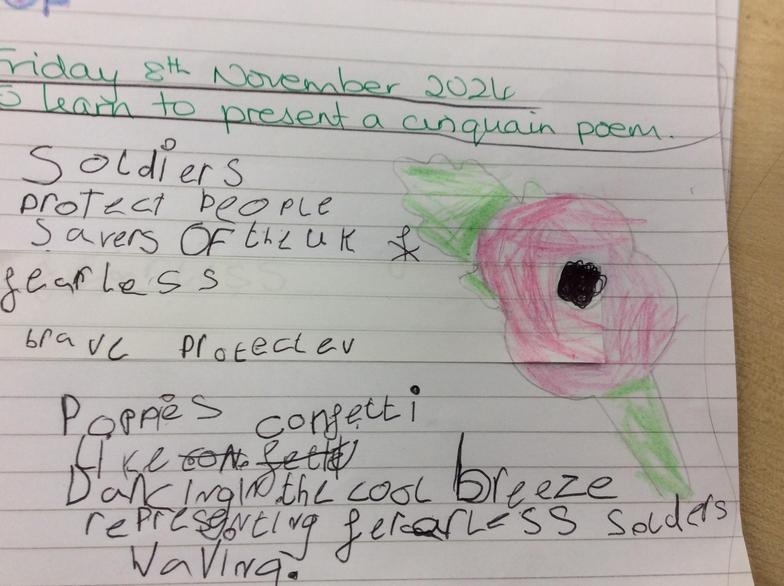 Friday 8th November 2024
To learn to present a cinquain poem.
Soldiers
protect people
Savers of the UK
fearless
brave protecter
Poppies confetti
like
Dancing in the cool breeze
representing fearless Solders
Waving.